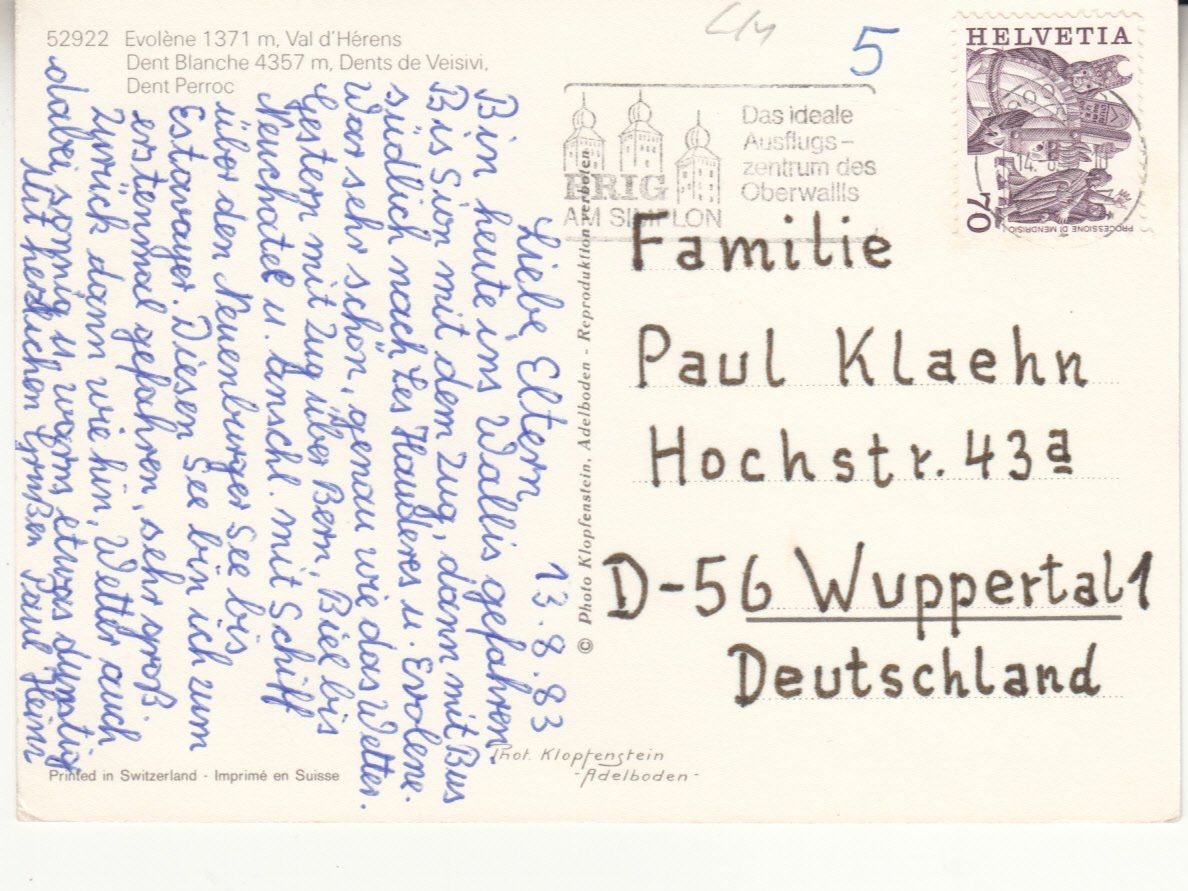 52922 Evolène 1371 m, Val d'Hérens
Dent Blanche 4357 m, Dents de Veisivi,
Dent Perroc
5
HELVETIA
70
PROCESSIONE DI MENDRISIO
BRIG
AM SIMPLON
Das ideale
Ausflugs-
zentrum des
Oberwallis
Liebe Eltern 13.8.83
Bin heute ins Wallis gefahren.
Bis Sion mit dem Zug, dann mit Bus
südlich nach Les Hauderes u. Evolene.
War sehr schön, genau wie das Wetter.
Gestern mit Zug über Bern, Biel bis
Neuchatel u. anschl. mit Schiff
über den Neuenburger See bis
Estavayer. Diesen See bin ich zum
erstenmal gefahren, sehr groß.
Zurück dann wie hin, Wetter auch
dabei sonnig u. warm, etwas dunstig
Mit herzlichen Grüßen Paul Heinz
© Photo Klopfenstein, Adelboden - Reproduktion verboten
Familie
Paul Klaehn
Hochstr. 43a
D-56 Wuppertal 1
Deutschland
Phot. Klopfenstein
- Adelboden -
Printed in Switzerland · Imprimé en Suisse